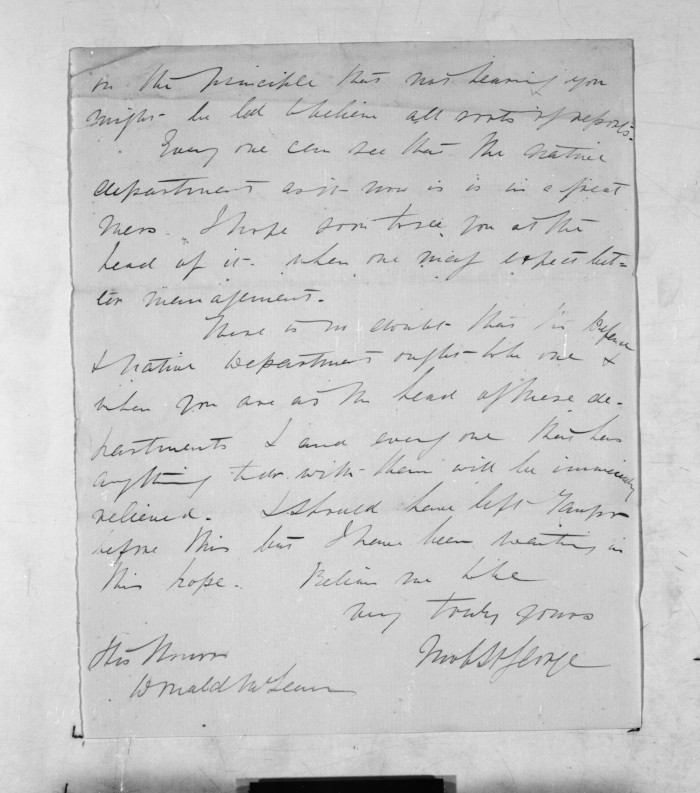 on the principle that not hearing you
might be led to believe all sorts of reports.
Every one can see that the native
department as it now is is in a great
mess. I hope soon to see you at the
head of it when one may expect bet-
ter management.
There is no doubt that the Defence
& Native Department ought to be one &
when you are at the head of these de-
partments I and every one that has
anything to do with them will be immensely
relieved. I should have left Taupo
before this but I have been waiting in
this hope. Believe me to be
very truly yours
St George
His Honor
Donald McLean